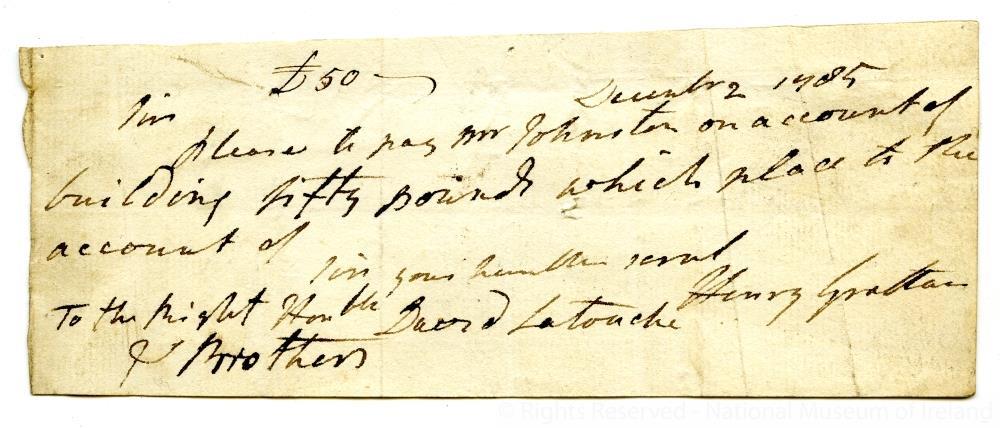 £50
December 2 1785
Sir
Please to pay Mr Johnston on account of
building fifty pounds which place to the
account of
Sir your humble servt
Henry Grattan
To the Right Honble David Latouche
& Brothers
© Rights Reserved - National Museum of Ireland